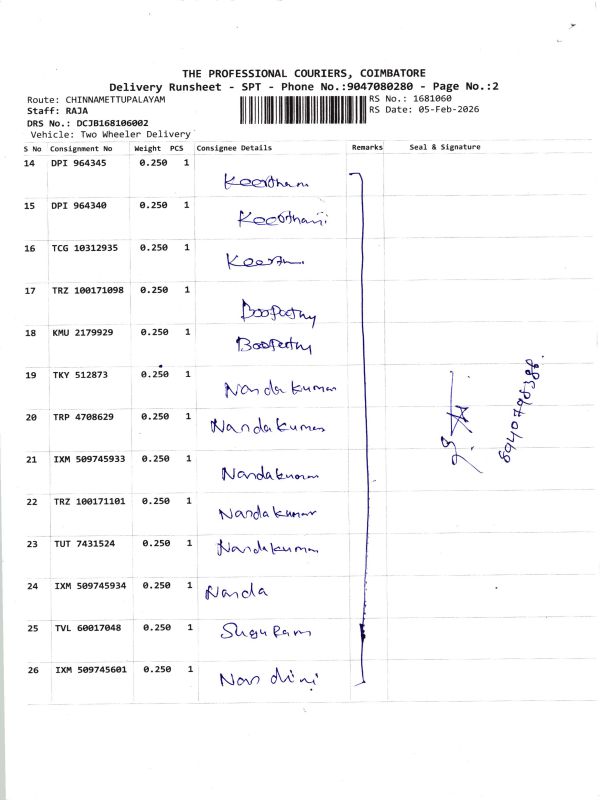 THE PROFESSIONAL COURIERS, COIMBATORE
Delivery Runsheet - SPT - Phone No.:9047080280 - Page No.:2
Route: CHINNAMETTUPALAYAM
RS No.: 1681060
Staff: RAJA
RS Date: 05-Feb-2026
DRS No.: DCJB168106002
Vehicle: Two Wheeler Delivery
S No Consignment No Weight PCS Consignee Details Remarks Seal & Signature
14 DPI 964345 0.250 1
15 DPI 964340 0.250 1
16 TCG 10312935 0.250 1
17 TRZ 100171098 0.250 1 Boopathy
18 KMU 2179929 0.250 1 Boopathy
19 TKY 512873 0.250 1 Nanda kumar
20 TRP 4708629 0.250 1 Nanda kumar
21 IXM 509745933 0.250 1 Nandakumar
22 TRZ 100171101 0.250 1 Nandakumar
23 TUT 7431524 0.250 1 Nandakumar
24 IXM 509745934 0.250 1 Nanda
25 TVL 60017048 0.250 1 Suguram
26 IXM 509745601 0.250 1 Nandhini
8940798388.